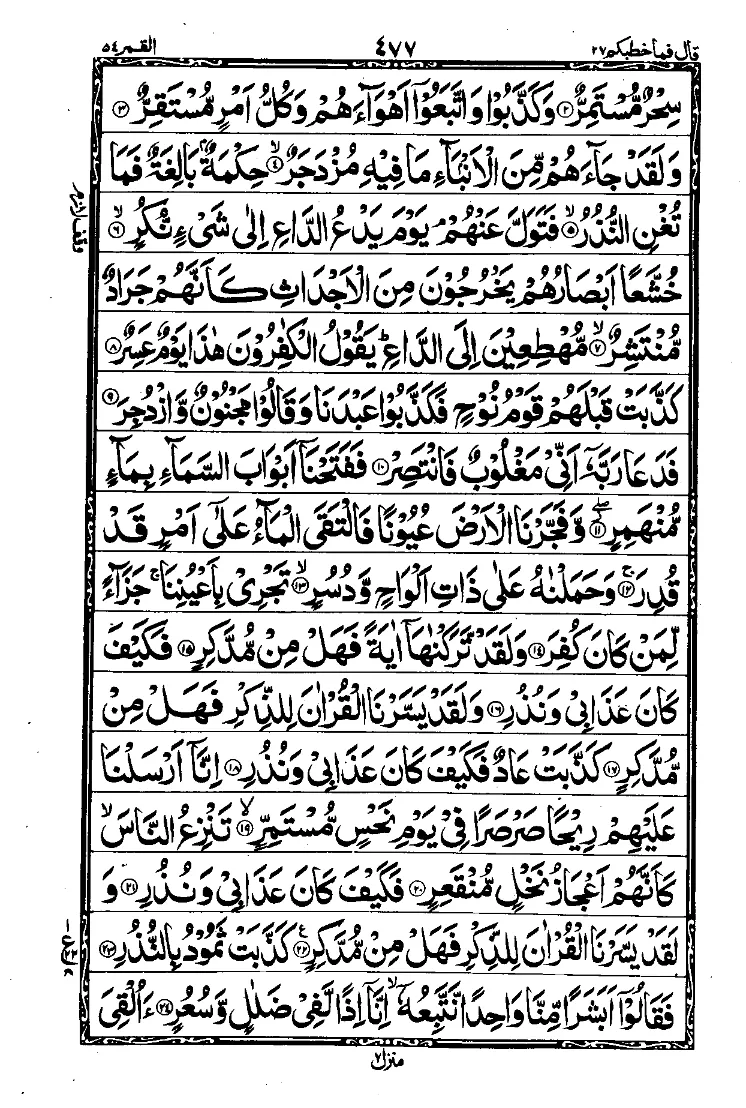 قال فما خطبكم ٢٧
٤٧٧
القمر ٥٤
سِحْرٌ مُّسْتَمِرٌّ ﴿۲﴾ وَكَذَّبُوْا وَاتَّبَعُوْٓا اَهْوَآءَهُمْ وَكُلُّ اَمْرٍ مُّسْتَقِرٌّ ﴿۳﴾
وَلَقَدْ جَآءَهُمْ مِّنَ الْاَنْۢبَآءِ مَا فِيْهِ مُزْدَجَرٌ ۙ﴿۴﴾ حِكْمَةٌۢ بَالِغَةٌ فَمَا
تُغْنِ النُّذُرُ ۙ﴿۵﴾ فَتَوَلَّ عَنْهُمْ ۘ يَوْمَ يَدْعُ الدَّاعِ اِلٰى شَیْءٍ نُّكُرٍ ۙ﴿۶﴾
وقف لازم
خُشَّعًا اَبْصَارُهُمْ يَخْرُجُوْنَ مِنَ الْاَجْدَاثِ كَاَنَّهُمْ جَرَادٌ
مُّنْتَشِرٌ ۙ﴿۷﴾ مُّهْطِعِيْنَ اِلَى الدَّاعِ ؕ يَقُوْلُ الْكٰفِرُوْنَ هٰذَا يَوْمٌ عَسِرٌ ﴿۸﴾
كَذَّبَتْ قَبْلَهُمْ قَوْمُ نُوْحٍ فَكَذَّبُوْا عَبْدَنَا وَقَالُوْا مَجْنُوْنٌ وَّازْدُجِرَ ﴿۹﴾
فَدَعَا رَبَّهٗٓ اَنِّیْ مَغْلُوْبٌ فَانْتَصِرْ ﴿۱۰﴾ فَفَتَحْنَآ اَبْوَابَ السَّمَآءِ بِمَآءٍ
مُّنْهَمِرٍ ۖ﴿۱۱﴾ وَّفَجَّرْنَا الْاَرْضَ عُيُوْنًا فَالْتَقَى الْمَآءُ عَلٰٓى اَمْرٍ قَدْ
قُدِرَ ۚ﴿۱۲﴾ وَحَمَلْنٰهُ عَلٰى ذَاتِ اَلْوَاحٍ وَّدُسُرٍ ۙ﴿۱۳﴾ تَجْرِیْ بِاَعْيُنِنَا ۚ جَزَآءً
لِّمَنْ كَانَ كُفِرَ ﴿۱۴﴾ وَلَقَدْ تَّرَكْنٰهَآ اٰيَةً فَهَلْ مِنْ مُّدَّكِرٍ ﴿۱۵﴾ فَكَيْفَ
كَانَ عَذَابِیْ وَنُذُرِ ﴿۱۶﴾ وَلَقَدْ يَسَّرْنَا الْقُرْاٰنَ لِلذِّكْرِ فَهَلْ مِنْ
مُّدَّكِرٍ ﴿۱۷﴾ كَذَّبَتْ عَادٌ فَكَيْفَ كَانَ عَذَابِیْ وَنُذُرِ ﴿۱۸﴾ اِنَّآ اَرْسَلْنَا
عَلَيْهِمْ رِيْحًا صَرْصَرًا فِیْ يَوْمِ نَحْسٍ مُّسْتَمِرٍّ ۙ﴿۱۹﴾ تَنْزِعُ النَّاسَ ۙ
كَاَنَّهُمْ اَعْجَازُ نَخْلٍ مُّنْقَعِرٍ ﴿۲۰﴾ فَكَيْفَ كَانَ عَذَابِیْ وَنُذُرِ ﴿۲۱﴾ وَ
لَقَدْ يَسَّرْنَا الْقُرْاٰنَ لِلذِّكْرِ فَهَلْ مِنْ مُّدَّكِرٍ ﴿۲۲﴾ كَذَّبَتْ ثَمُوْدُ بِالنُّذُرِ ﴿۲۳﴾
فَقَالُوْٓا اَبَشَرًا مِّنَّا وَاحِدًا نَّتَّبِعُهٗٓ ۙ اِنَّآ اِذًا لَّفِیْ ضَلٰلٍ وَّسُعُرٍ ﴿۲۴﴾ ءَاُلْقِیَ
منزل ٧